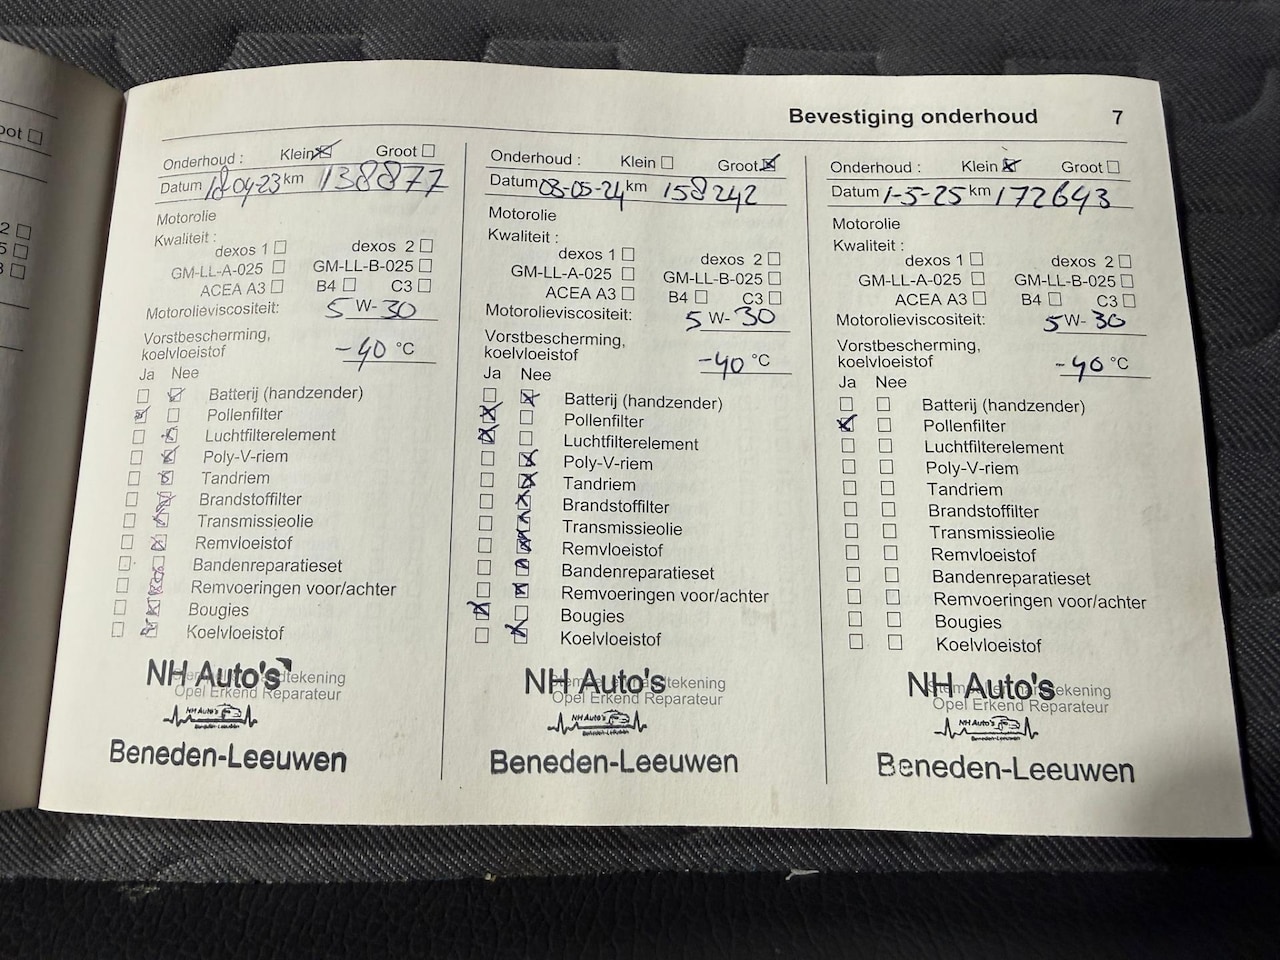 oot
2
5
3
Bevestiging onderhoud 7
Onderhoud : Klein Groot
Datum 18 04-23 km 138877
Motorolie
Kwaliteit :
dexos 1 dexos 2
GM-LL-A-025 GM-LL-B-025
ACEA A3 B4 C3
Motorolieviscositeit: 5 W- 30
Vorstbescherming,
koelvloeistof -40 °C
Ja Nee
Batterij (handzender)
Pollenfilter
Luchtfilterelement
Poly-V-riem
Tandriem
Brandstoffilter
Transmissieolie
Remvloeistof
Bandenreparatieset
Remvoeringen voor/achter
Bougies
Koelvloeistof
NH Auto's
Opel Erkend Reparateur
NH Auto's
Beneden-Leeuwen
Beneden-Leeuwen
Onderhoud : Klein Groot
Datum 03-05-24 km 158242
Motorolie
Kwaliteit :
dexos 1 dexos 2
GM-LL-A-025 GM-LL-B-025
ACEA A3 B4 C3
Motorolieviscositeit: 5 W- 30
Vorstbescherming,
koelvloeistof -40 °C
Ja Nee
Batterij (handzender)
Pollenfilter
Luchtfilterelement
Poly-V-riem
Tandriem
Brandstoffilter
Transmissieolie
Remvloeistof
Bandenreparatieset
Remvoeringen voor/achter
Bougies
Koelvloeistof
NH Auto's
Opel Erkend Reparateur
NH Auto's
Beneden-Leeuwen
Beneden-Leeuwen
Onderhoud : Klein Groot
Datum 1-5-25 km 172643
Motorolie
Kwaliteit :
dexos 1 dexos 2
GM-LL-A-025 GM-LL-B-025
ACEA A3 B4 C3
Motorolieviscositeit: 5 W- 30
Vorstbescherming,
koelvloeistof -40 °C
Ja Nee
Batterij (handzender)
Pollenfilter
Luchtfilterelement
Poly-V-riem
Tandriem
Brandstoffilter
Transmissieolie
Remvloeistof
Bandenreparatieset
Remvoeringen voor/achter
Bougies
Koelvloeistof
NH Auto's
Opel Erkend Reparateur
NH Auto's
Beneden-Leeuwen
Beneden-Leeuwen